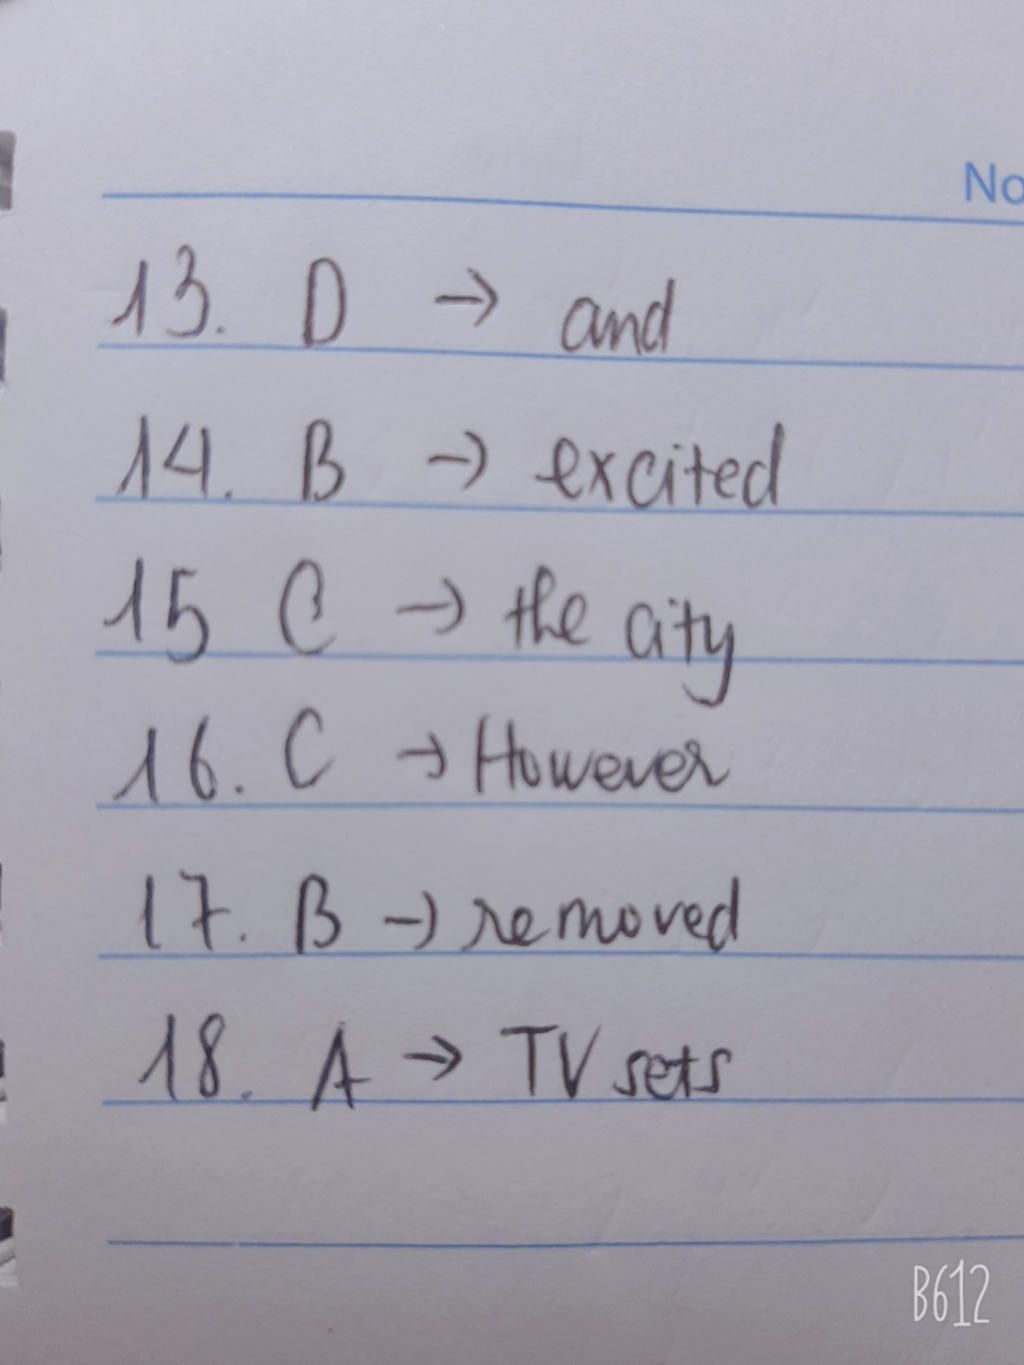 No
13. D → and
14. B → excited
15 C → the city
16. C → However
17. B → removed
18. A → TV sets
B612